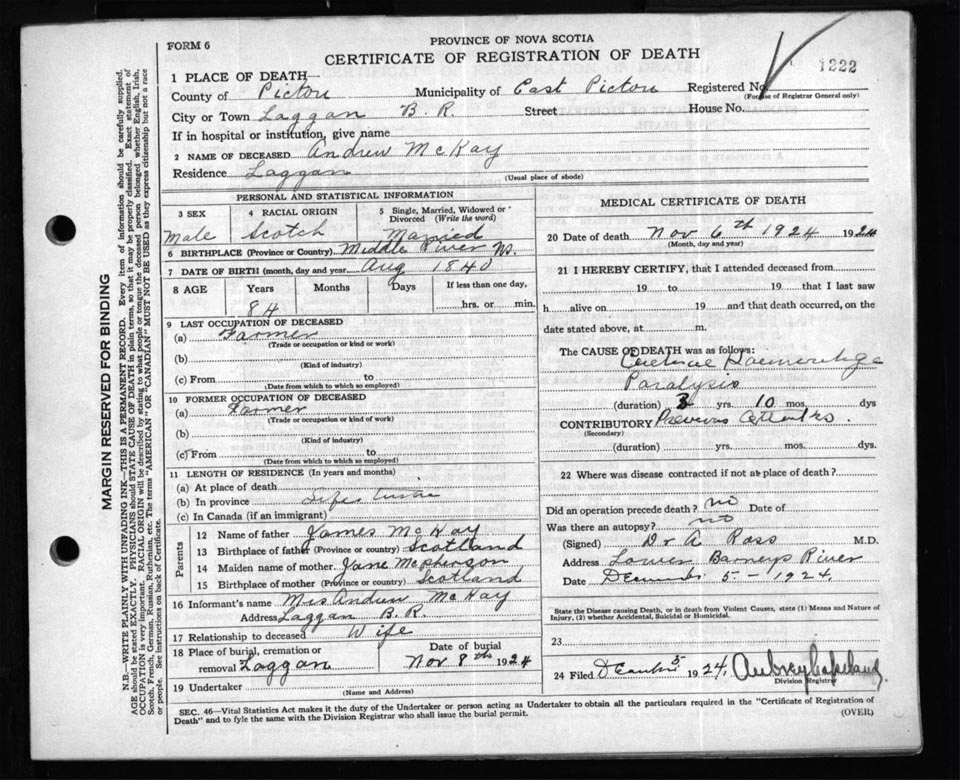 FORM 6
PROVINCE OF NOVA SCOTIA
CERTIFICATE OF REGISTRATION OF DEATH
1222
1 PLACE OF DEATH
County of Pictou Municipality of East Pictou Registered No.
(For use of Registrar General only)
City or Town Laggan B. R. Street House No.
If in hospital or institution, give name
2 NAME OF DECEASED Andrew McKay
Residence Laggan
(Usual place of abode)
PERSONAL AND STATISTICAL INFORMATION
3 SEX 4 RACIAL ORIGIN 5 Single, Married, Widowed or Divorced (Write the word)
Male Scotch Married
6 BIRTHPLACE (Province or Country) Middle River NS.
7 DATE OF BIRTH (month, day and year) Aug 1840
8 AGE Years Months Days If less than one day,
84 hrs. or min.
9 LAST OCCUPATION OF DECEASED
(a) Farmer
(Trade or occupation or kind or work)
(b)
(Kind of industry)
(c) From to
(Date from which to which so employed)
10 FORMER OCCUPATION OF DECEASED
(a) Farmer
(Trade or occupation or kind of work)
(b)
(Kind of industry)
(c) From to
(Date from which to which so employed)
11 LENGTH OF RESIDENCE (In years and months)
(a) At place of death
(b) In province Life time
(c) In Canada (if an immigrant)
Parents
12 Name of father James McKay
13 Birthplace of father (Province or country) Scotland
14 Maiden name of mother Jane McPherson
15 Birthplace of mother (Province or country) Scotland
16 Informant's name Mrs Andrew McKay
Address Laggan B.R.
17 Relationship to deceased Wife
18 Place of burial, cremation or removal Laggan
Date of burial
Nov 8th 1924
19 Undertaker
(Name and Address)
MEDICAL CERTIFICATE OF DEATH
20 Date of death Nov 6th 1924 1924
(Month, day and year)
21 I HEREBY CERTIFY, that I attended deceased from
19 to 19 that I last saw
h alive on 19 and that death occurred, on
date stated above, at m.
The CAUSE OF DEATH was as follows:
Haemorrhage
Paralysis
(duration) 3 yrs. 10 mos. dys
CONTRIBUTORY Previous Attacks.
(Secondary)
(duration) yrs. mos. dys.
22 Where was disease contracted if not at place of death?
Did an operation precede death? no Date of
Was there an autopsy? no
(Signed) Dr A Ross M.D.
Address Lower Barneys River
Date December 5 - 1924,
State the Disease causing Death, or in death from Violent Causes, state (1) Means and Nature of
Injury, (2) whether Accidental, Suicidal or Homicidal.
23
24 Filed December 5 1924, Aubrey Copeland
Division Registrar
SEC. 46—Vital Statistics Act makes it the duty of the Undertaker or person acting as Undertaker to obtain all the particulars required in the "Certificate of Registration of
Death" and to fyle the same with the Division Registrar who shall issue the burial permit.
(OVER)
MARGIN RESERVED FOR BINDING
N.B.—WRITE PLAINLY WITH UNFADING INK—THIS IS A PERMANENT RECORD. Every item of information should be carefully supplied.
AGE should be stated EXACTLY. PHYSICIANS should STATE CAUSE OF DEATH in plain terms, so that it may be properly classified. Exact statement of
OCCUPATION is very important. RACIAL ORIGIN will be described by stating to what people or tongue the deceased person belonged whether English, Irish,
Scotch, French, German, Russian, Ruthenian, etc. The terms "AMERICAN" OR "CANADIAN" MUST NOT BE USED as they express citizenship but not a race
or people. See instructions on back of Certificate.